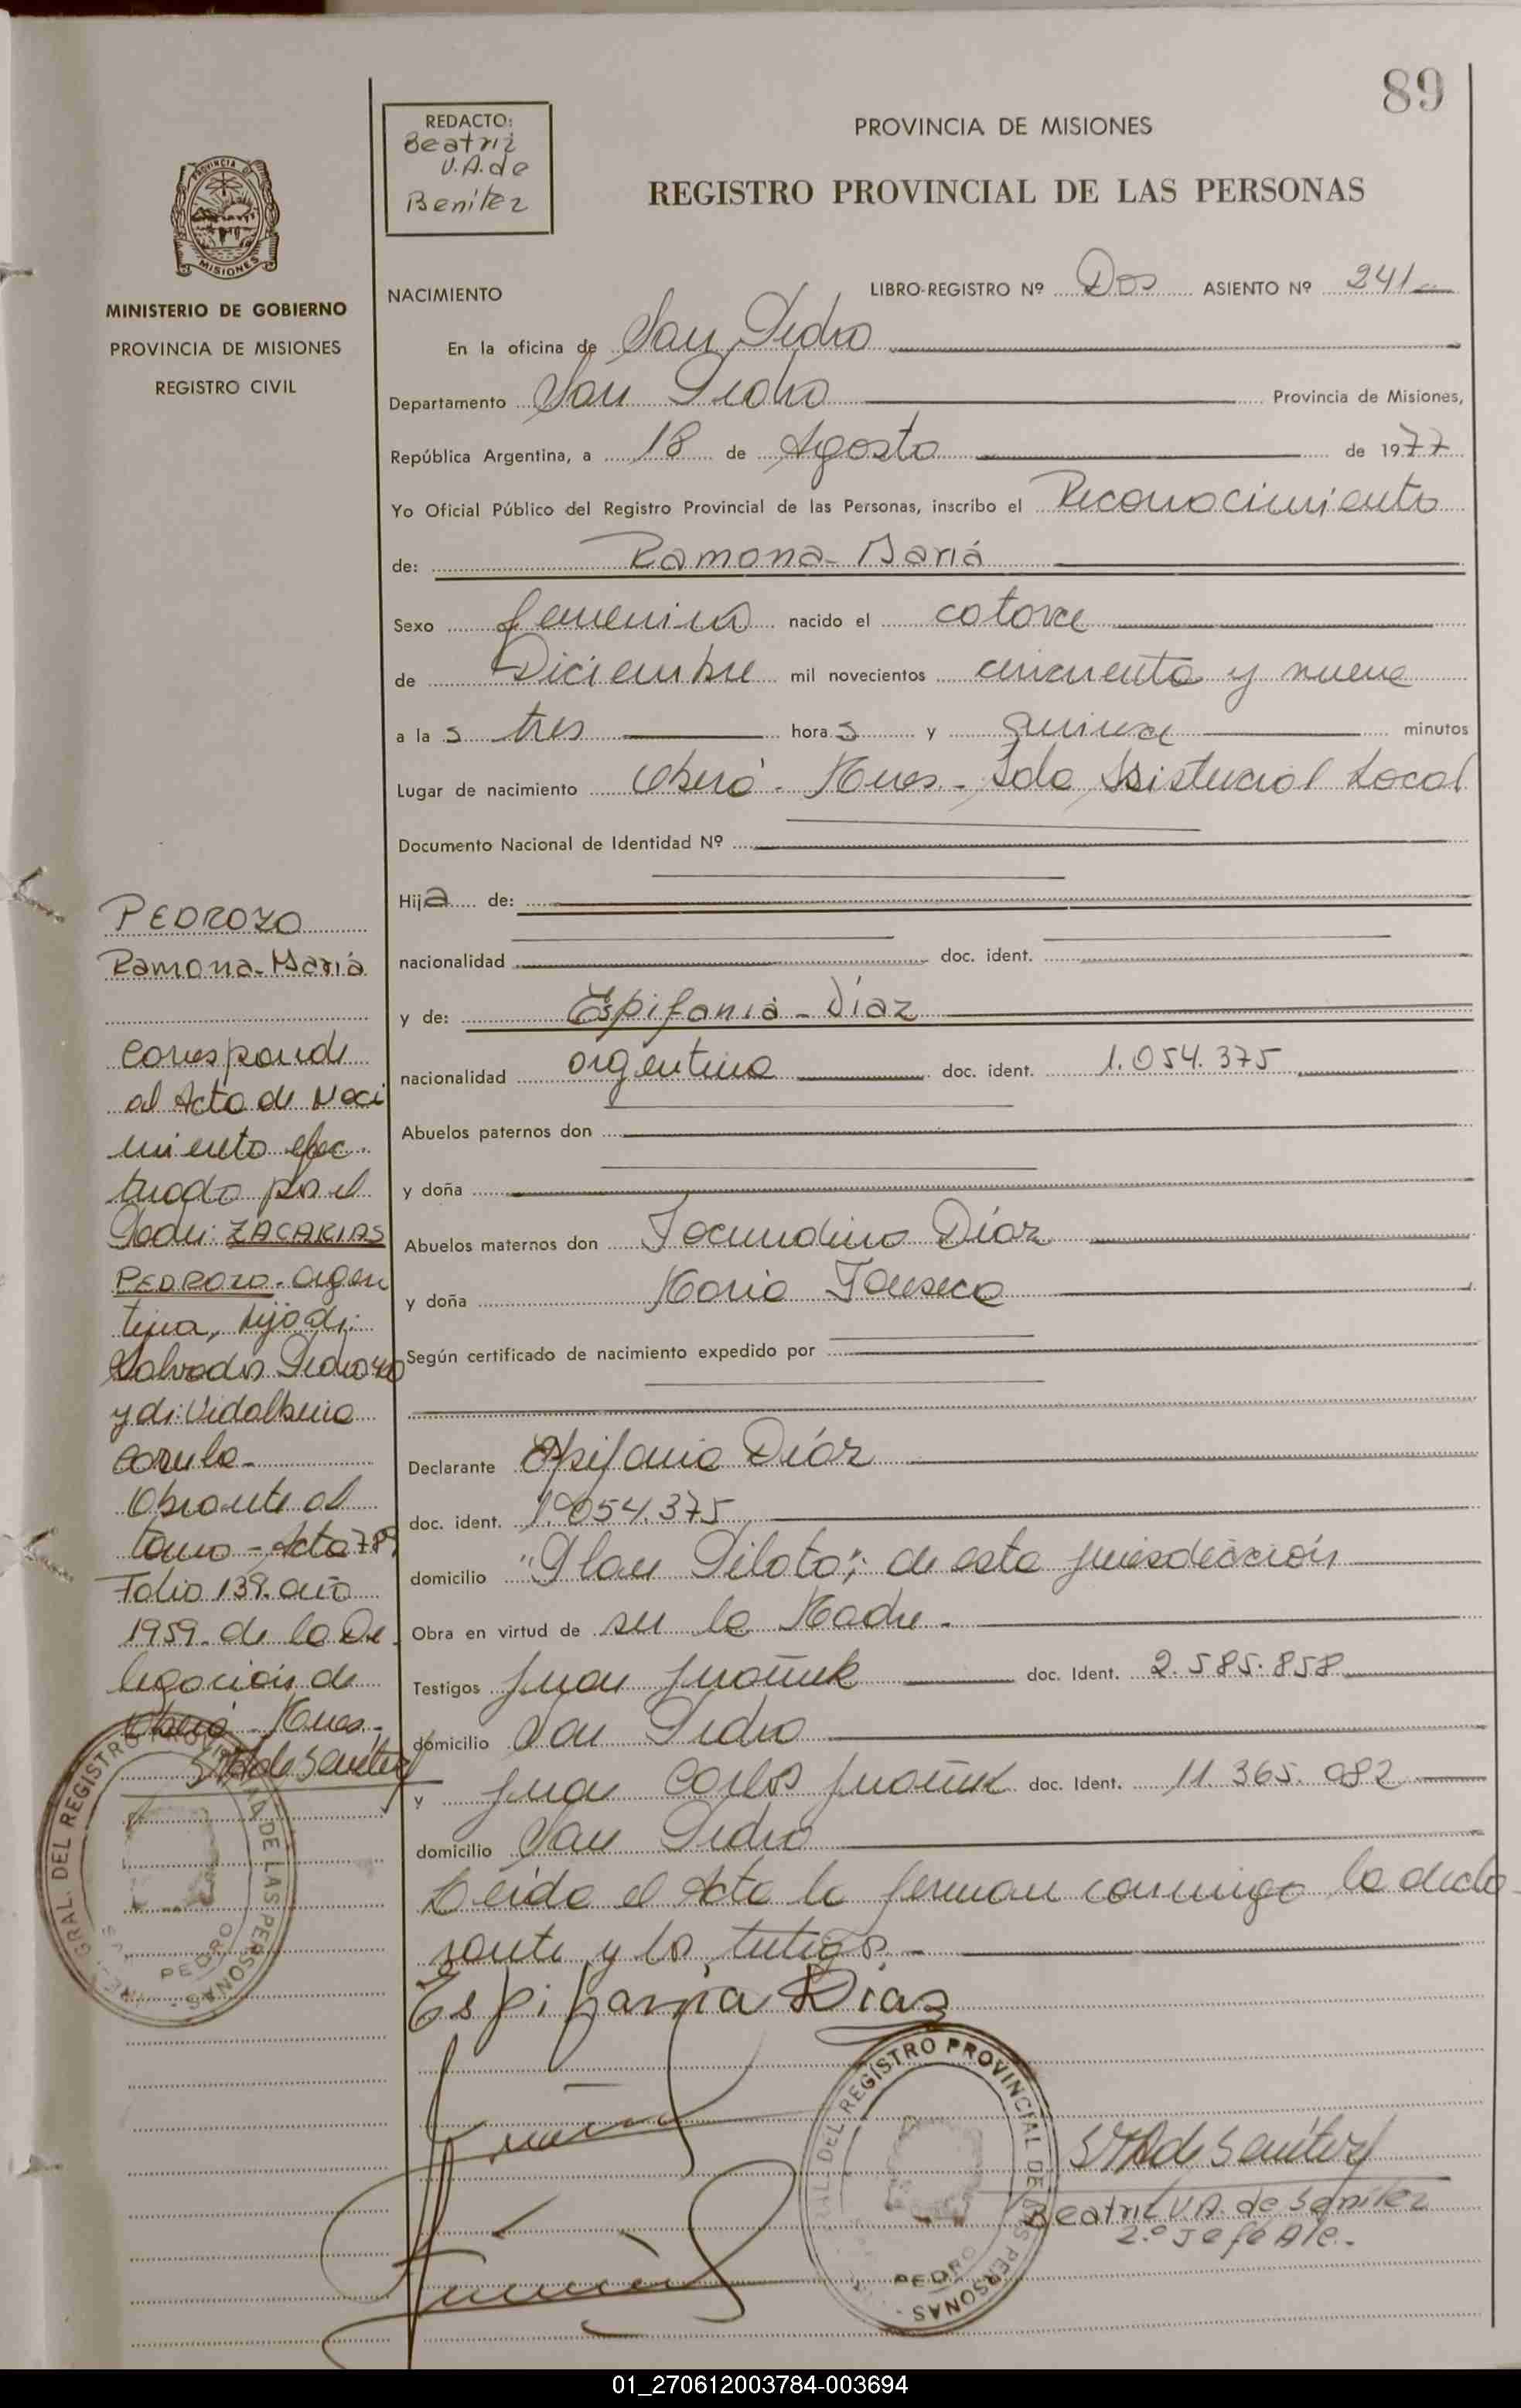 89
REDACTO:
Beatriz
V.A. de
Benítez
PROVINCIA DE MISIONES
REGISTRO PROVINCIAL DE LAS PERSONAS
PROVINCIA
MISIONES
MINISTERIO DE GOBIERNO
PROVINCIA DE MISIONES
REGISTRO CIVIL
NACIMIENTO
LIBRO-REGISTRO Nº Dos ASIENTO Nº 241
En la oficina de San Pedro
Departamento San Pedro Provincia de Misiones,
República Argentina, a 18 de Agosto de 1977
Yo Oficial Público del Registro Provincial de las Personas, inscribo el Reconocimiento
de: Ramona - Mariá
Sexo femenino nacido el catorce
de Diciembre mil novecientos cincuenta y nueve
a las tres horas y quince minutos
Lugar de nacimiento Oberá - Mnes - Sala Asistencial Local
Documento Nacional de Identidad Nº
Hija de:
nacionalidad doc. ident.
y de: Espifaniá - Díaz
nacionalidad argentina doc. ident. 1.054.375
Abuelos paternos don
y doña
Abuelos maternos don Facundino Díaz
y doña Maria Fonseca
Según certificado de nacimiento expedido por
Declarante Epifania Díaz
doc. ident. 1.054.375
domicilio "Plan Piloto", de esta jurisdicción
Obra en virtud de ser la Madre -
Testigos Juan doc. Ident. 2.585.858
domicilio San Pedro
y Juan Carlos doc. Ident. 11.365.082
domicilio San Pedro
Leída el Acta la firman conmigo la decla-
rante y los testigos -
Espifania Díaz
Beatriz V.A. de Benítez
2.º Jefe
PEDROZO
Ramona - Mariá
Corresponde
al Acta de Naci
miento efec-
tuado por el
Padre: ZACARIAS
PEDROZO - argen
tino, hijo de:
Salvador Pedrozo
y de: Vidalbina
Obrante al
tomo - Acta 789
Folio 139. año
1959. de la De-
legación de
Oberá - Mnes -
GRAL. DEL REGISTRO PROVINCIAL DE LAS PERSONAS
PEDRO
GRAL. DEL REGISTRO PROVINCIAL DE LAS PERSONAS
PEDRO
01_270612003784-003694